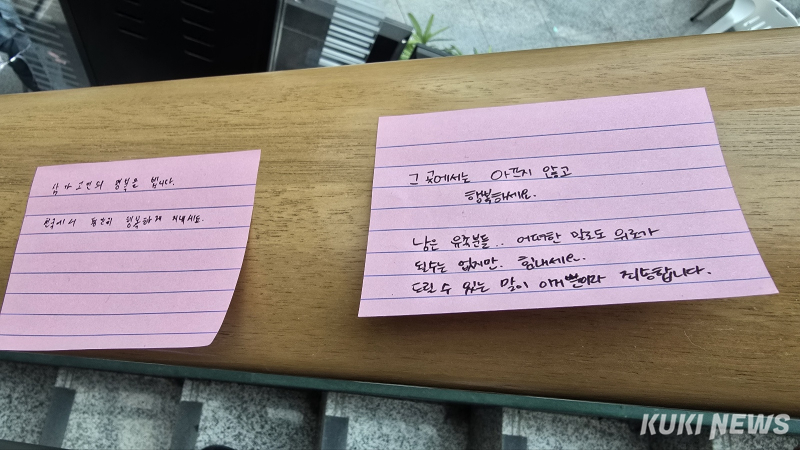 삼가 고인의 명복을 빕니다.
천국에서 편안히 행복하게 지내세요.
그 곳에서는 아프지 않고
행복하세요.
남은 유족분들.. 어떠한 말로도 위로가
될수는 없지만. 힘내세요.
드릴 수 있는 말이 이거 뿐이라 죄송합니다.
KUKI NEWS